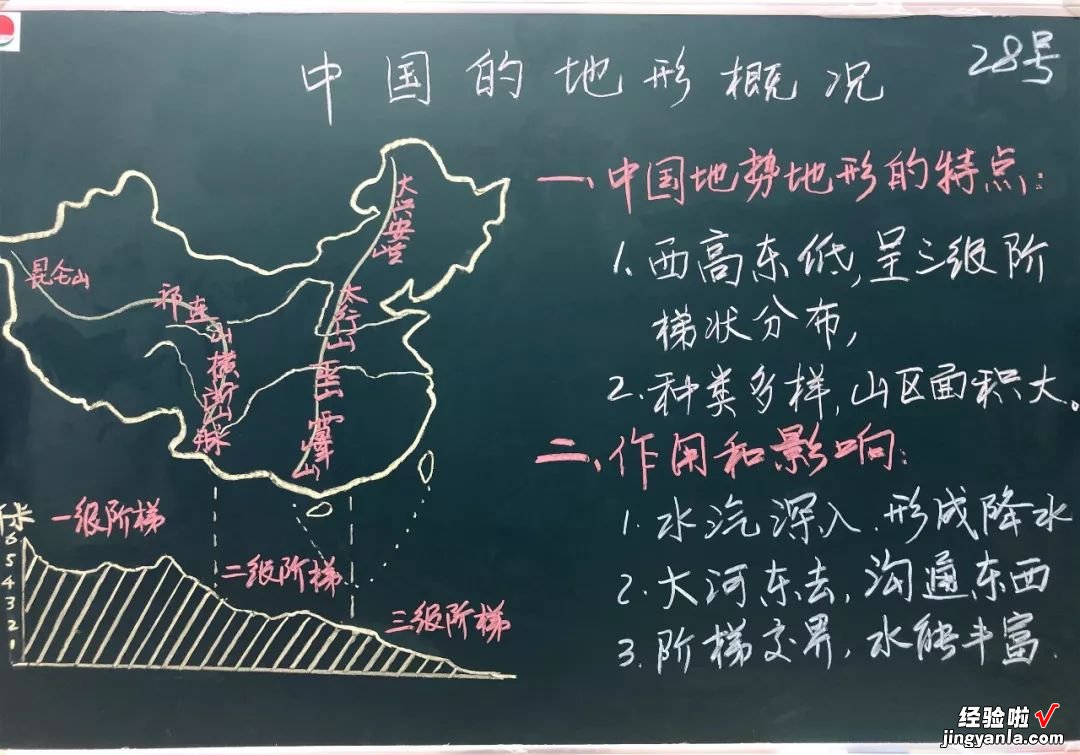 中国的地形概况
28号
大兴安岭
昆仑山
祁连山
太行山
横断山脉
巫山
雪峰山
千米
6
5
4
3
2
1
一级阶梯
二级阶梯
三级阶梯
一、中国地势地形的特点:
1、西高东低,呈三级阶
梯状分布,
2、种类多样,山区面积大。
二、作用和影响:
1、水汽深入、形成降水
2、大河东去,沟通东西
3、阶梯交界,水能丰富.
经验啦√
jingyanla.com